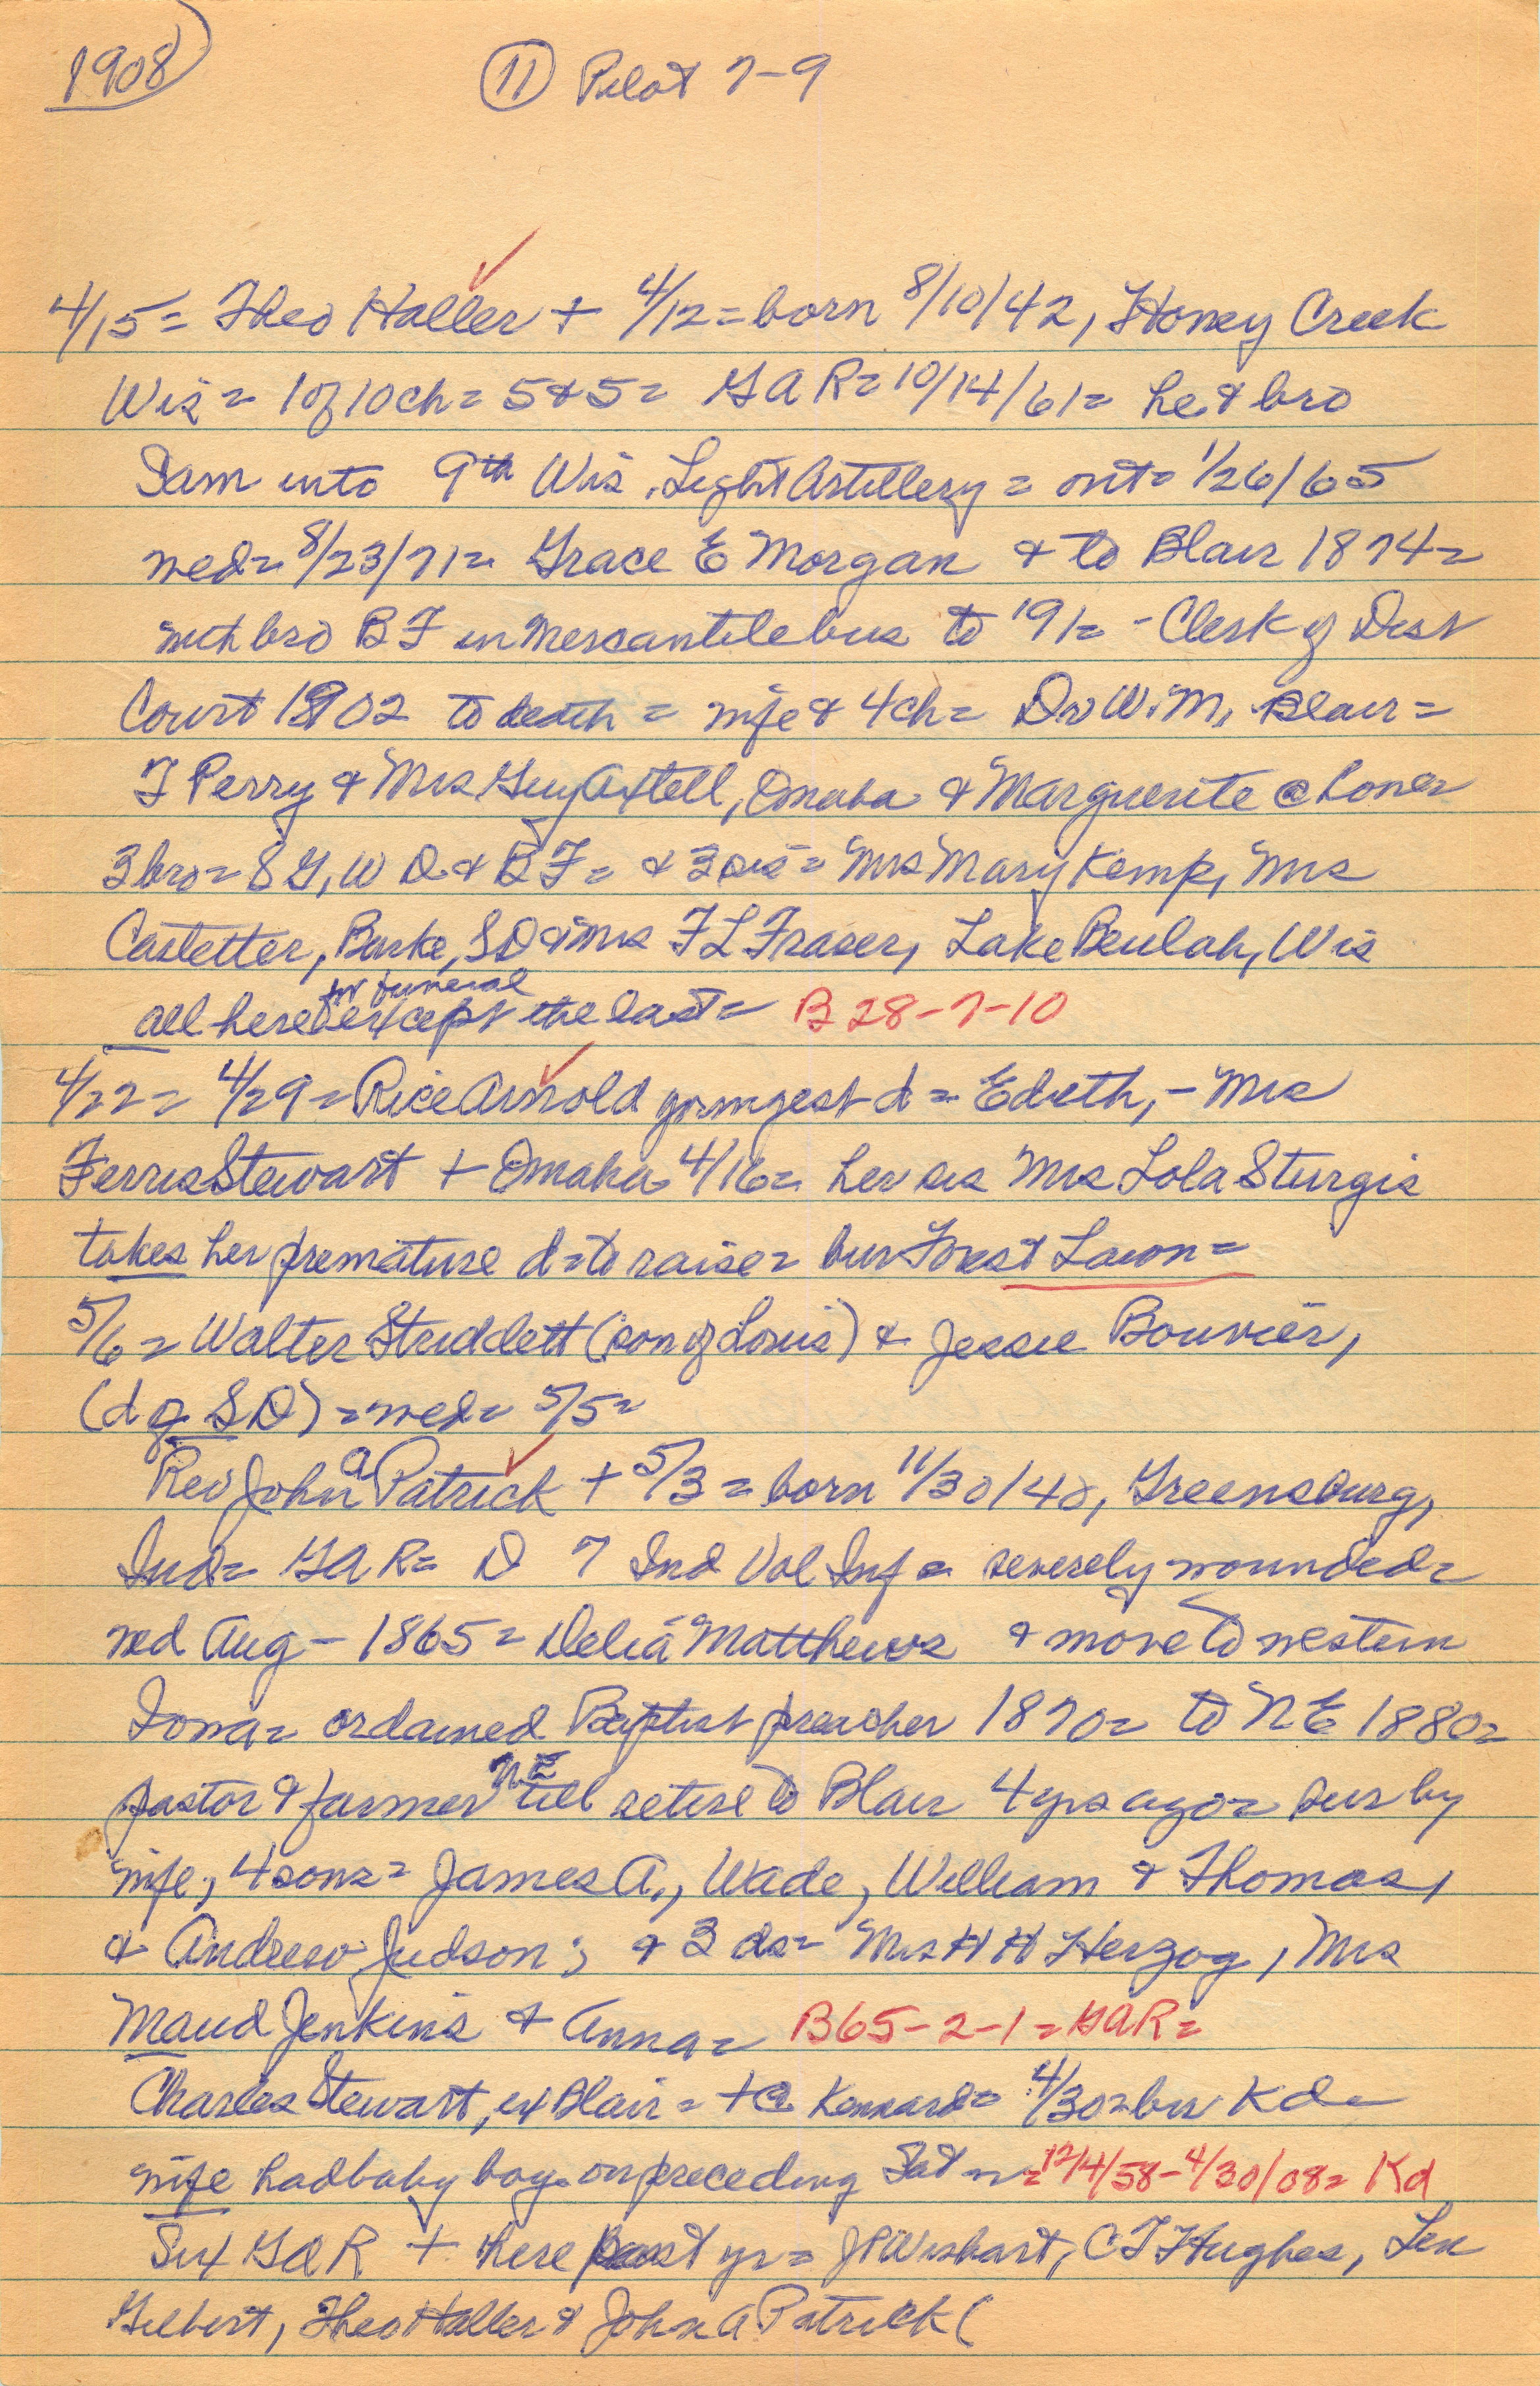 1908
11 Pilot 7-9
4/15 = Theo Haller + 4/12 = born 8/10/42, Honey Creek
Wis = 1 of 10 ch = 5 & 5 = GAR = 10/14/61 = he & bro
Sam into 9th Wis. Light Artillery = out = 1/26/65
wed = 8/23/71 = Grace E Morgan & to Blair 1874 =
with bro B F in mercantile bus to '91 = - Clerk of Dist
Court 1902 to death = wife & 4 ch = Dr W. M. Blair =
F Perry & Mrs Guy Axtell, Omaha & Marguerite @ home =
3 bro = S G, W D & B F = & 3 sis = Mrs Mary Kemp, Mrs
Castetter, Burke, SD & Mrs F L Fraser, Lake Beulah, Wis
all here for funeral except the last = B 28-7-10
4/22 = 4/29 = Rice Arnold youngest d = Edieth, - Mrs
Ferris Stewart + Omaha 4/16 = her sis Mrs Lola Sturgis
takes her premature d = to raise = bur Forest Lawn =
5/6 = Walter Striddett (son of Louis) & Jessie Bouvier,
(d of S D) = wed = 5/5 =
Rev John A Patrick + 5/3 = born 11/30/40, Greensburg,
Ind = GAR = D 7 Ind Vol Inf = severely wounded =
wed Aug - 1865 = Delia Matthews & move to western
Iowa = ordained Baptist preacher 1870 = to NE 1880 =
pastor & farmer NE till retire to Blair 4 yrs ago = sur by
wife, 4 sons = James A., Wade, William & Thomas,
& Andrew Judson; & 3 ds = Mrs H H Herzog, Mrs
Maud Jenkins & Anna = B65-2-1 = GAR =
Charles Stewart, ex Blair = + @ Kennard = 4/30 = bur Kd =
wife had baby boy on preceding Sat = 12/4/58 - 4/30/08 = Kd
Six GAR + here past yr = J P Wishart, C T Hughes, Len
Gilbert, Theo Haller & John A Patrick (